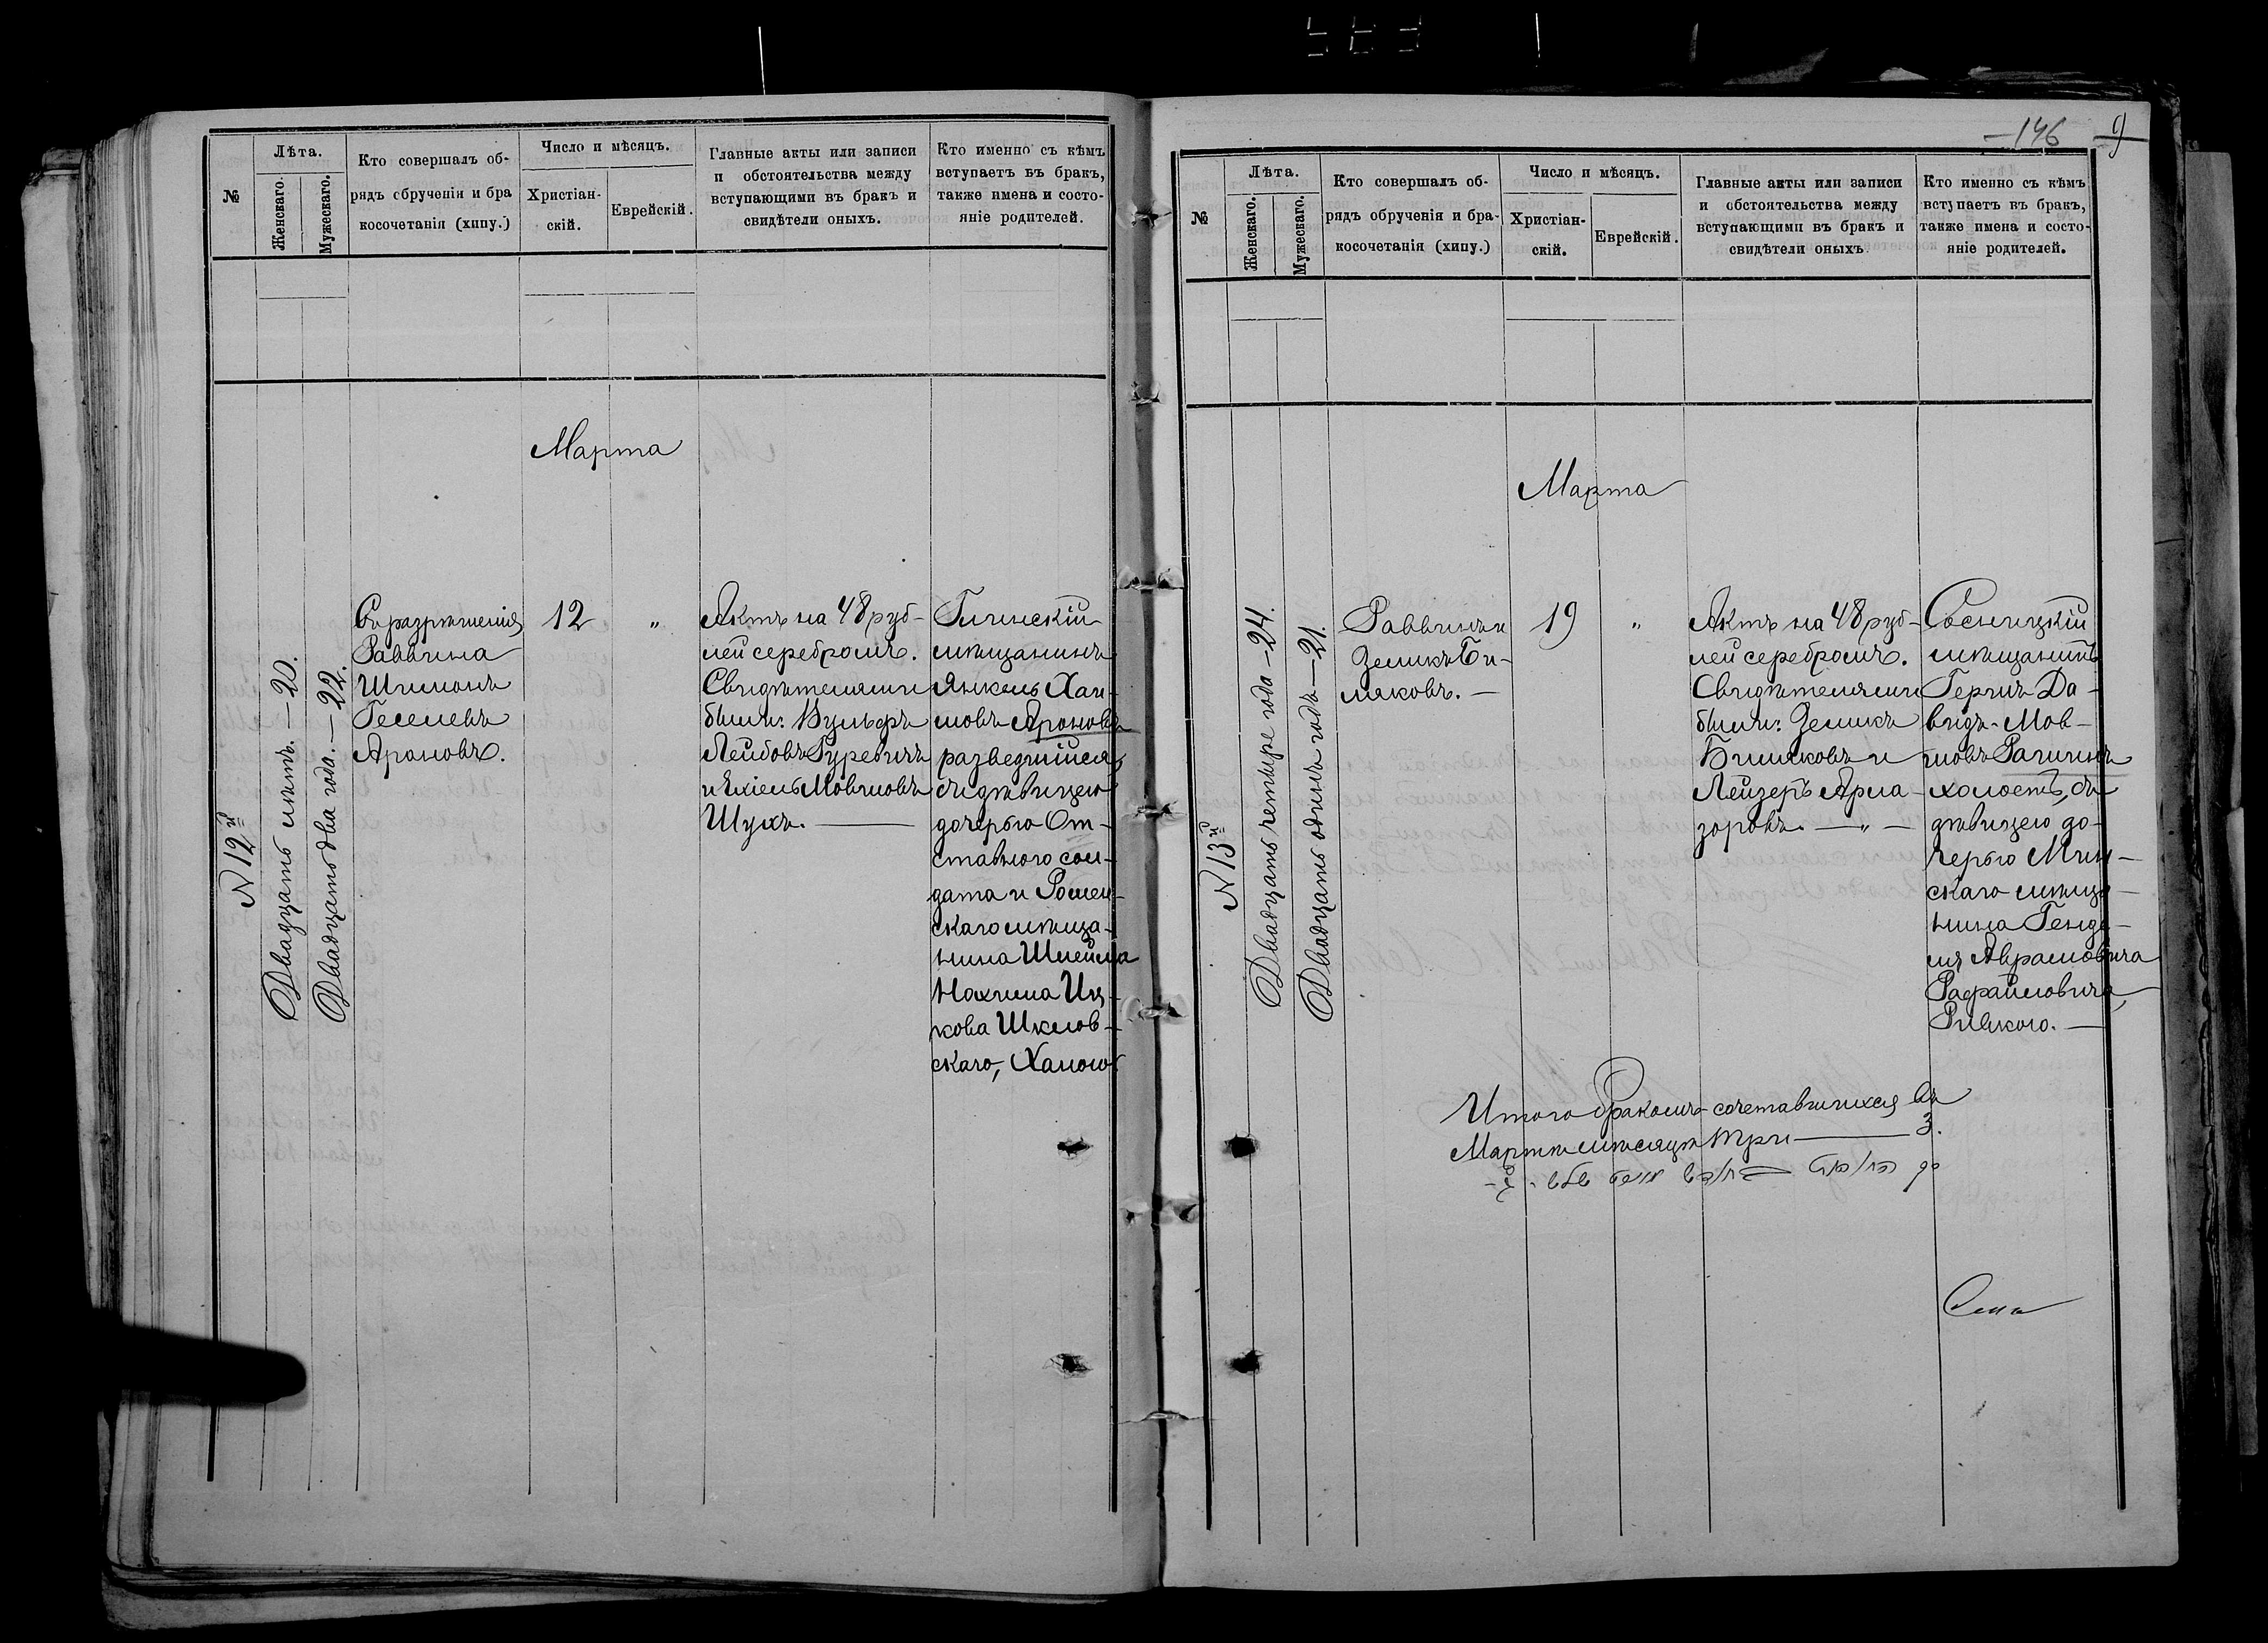 №
Лѣта.
Женскаго.
Мужескаго.
Кто совершалъ об-
рядъ обрученія и бра
косочетанія (хипу.)
Число и мѣсяцъ.
Христіан-
скій.
Еврейскій.
Главные акты или записи
и обстоятельства между
вступающими въ бракъ и
свидѣтели оныхъ.
Кто именно съ кѣмъ
вступаетъ въ бракъ,
также имена и состо-
яніе родителей.
Марта
N 12й
Двадцать лѣтъ. — 20.
Двадцать два года. — 22.
Съ разрѣшенія
Раввина
Шимонъ
Геселевъ
Ароновъ.
12
"
Актъ на 48 руб-
лей серебромъ.
Свидѣтелями
были: Вульфъ
Лейбовъ Гуревичъ
и Ехіель Мовшовъ
Шухъ. —
мѣщанинъ
Янкель Хаи-
мовъ Ароновъ
разведшийся,
съ дѣвицею
дочерью От-
ставного сол-
дата и Ромен-
скаго мѣща-
нина Шлейма
Нахима Иц-
кова Шклов-
скаго, Ханою
146
9
№
Лѣта.
Женскаго.
Мужескаго.
Кто совершалъ об-
рядъ обрученія и бра-
косочетанія (хипу.)
Число и мѣсяцъ.
Христіан-
скій.
Еврейскій.
Главные акты или записи
и обстоятельства между
вступающими въ бракъ и
свидѣтели оныхъ
Кто именно съ кѣмъ
вступаетъ въ бракъ,
также имена и состо-
яніе родителей.
Марта
N 13й
Двадцать четыре года — 24.
Двадцать одинъ годъ — 21.
Раввинъ
Зеликъ Би-
ляковъ. —
19
"
Актъ на 48 руб-
лей серебромъ.
Свидѣтелями
были: Зеликъ
Биляковъ и
Лейзеръ Арла-
зоровъ. — " —
Сосницкій
мѣщанинъ
Гершъ Да-
видъ Мов-
шовъ Рагинъ
холостъ, съ
дѣвицею до-
черью Мин-
скаго мѣща-
нина Генде-
ля Абрамовича
Рафайловича,
Ривкою. —
Итого бракомъ сочетавшихся въ
Мартѣ мѣсяцѣ три — 3.